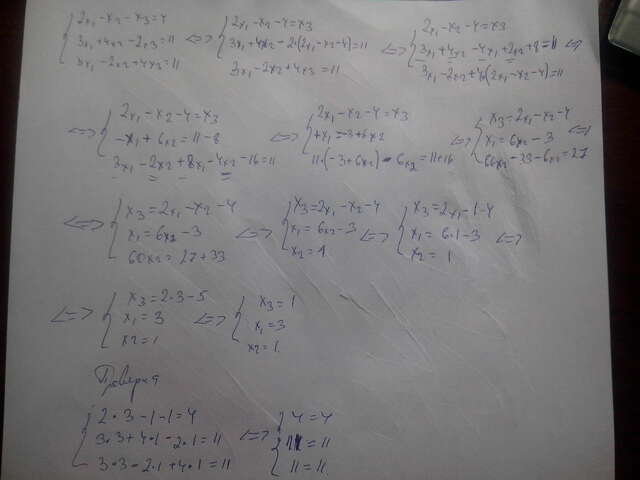 { 2x₁ - x₂ - x₃ = 4
{ 3x₁ + 4x₂ - 2x₃ = 11
{ 3x₁ - 2x₂ + 4x₃ = 11
<=> { 2x₁ - x₂ - 4 = x₃
{ 3x₁ + 4x₂ - 2(2x₁ - x₂ - 4) = 11
3x₁ - 2x₂ + 4x₃ = 11
<=> { 2x₁ - x₂ - 4 = x₃
{ 3x₁ + 4x₂ - 4x₁ + 2x₂ + 8 = 11 <=>
3x₁ - 2x₂ + 4(2x₁ - x₂ - 4) = 11
<=> { 2x₁ - x₂ - 4 = x₃
{ -x₁ + 6x₂ = 11 - 8
3x₁ - 2x₂ + 8x₁ - 4x₂ - 16 = 11
<=> { 2x₁ - x₂ - 4 = x₃
{ +x₁ = -3 + 6x₂
11·(-3 + 6x₂) - 6x₂ = 11 + 16
<=> { x₃ = 2x₁ - x₂ - 4
{ x₁ = 6x₂ - 3 <=>
66x₂ - 33 - 6x₂ = 27
<=> { x₃ = 2x₁ - x₂ - 4
{ x₁ = 6x₂ - 3
60x₂ = 27 + 33
<=> { x₃ = 2x₁ - x₂ - 4
{ x₁ = 6x₂ - 3
x₂ = 1
<=> { x₃ = 2x₁ - 1 - 4
{ x₁ = 6·1 - 3 <=>
x₂ = 1
<=> { x₃ = 2·3 - 5
{ x₁ = 3
x₂ = 1
<=> { x₃ = 1
{ x₁ = 3
x₂ = 1.
Проверка
{ 2·3 - 1 - 1 = 4
{ 3·3 + 4·1 - 2·1 = 11
{ 3·3 - 2·1 + 4·1 = 11
<=> { 4 = 4
{ 11 = 11
{ 11 = 11